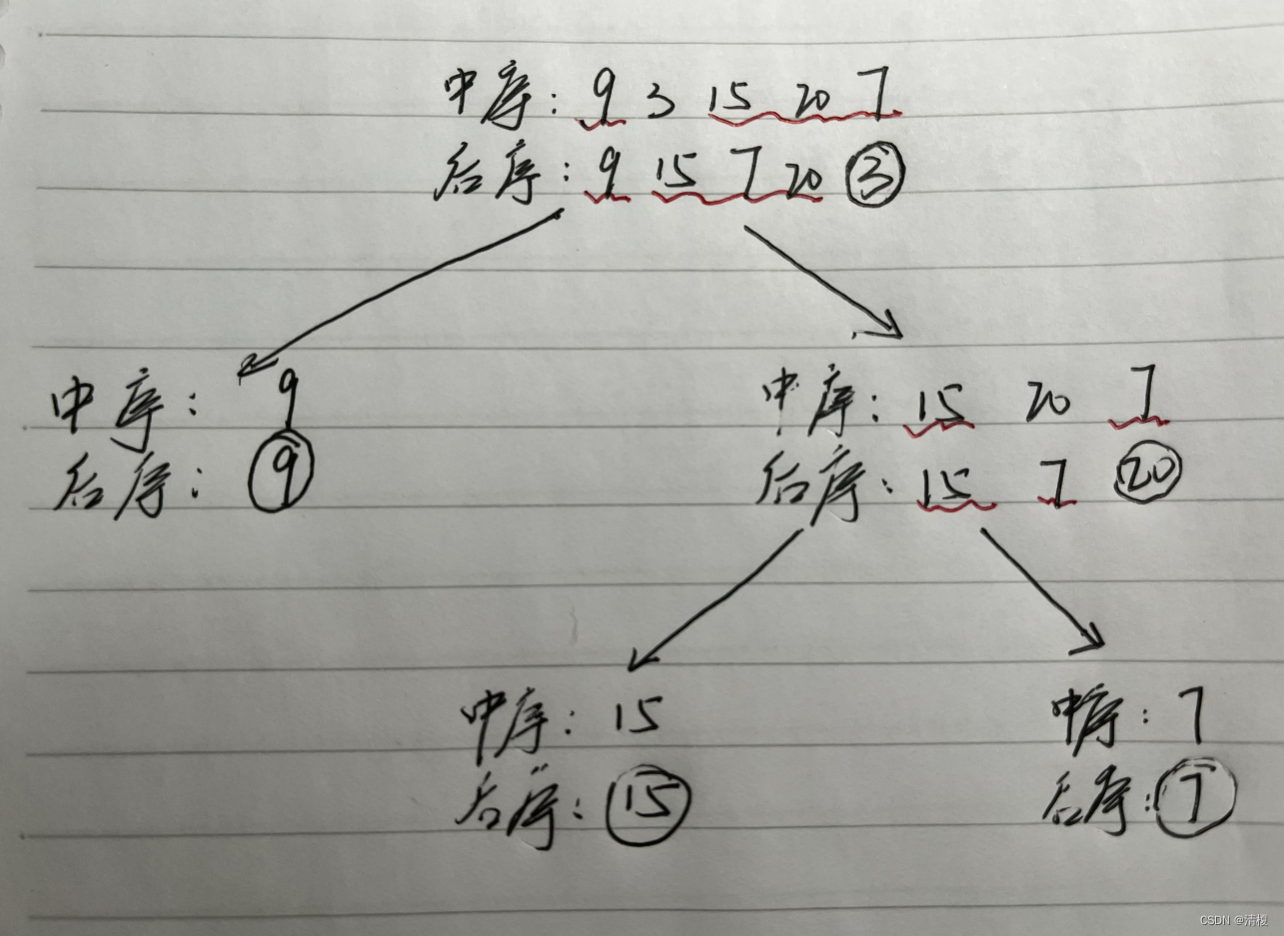 中序: 9 3 15 20 7
后序: 9 15 7 20 3
中序: 9
后序: 9
中序: 15 20 7
后序: 15 7 20
中序: 15
后序: 15
中序: 7
后序: 7
CSDN @清榎